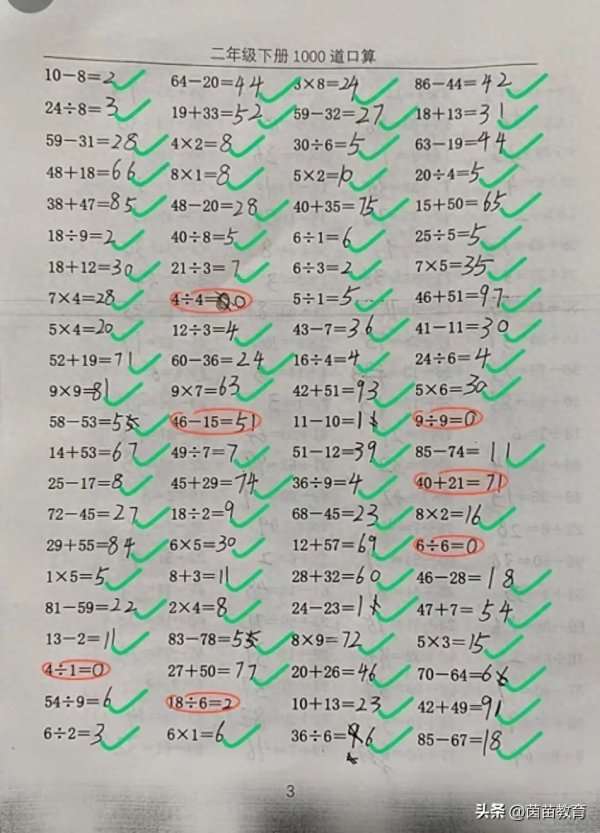 二年级下册1000道口算
10－8=2 64－20=44 3×8=24 86－44=42
24÷8=3 19+33=52 59－32=27 18+13=31
59－31=28 4×2=8 30÷6=5 63－19=44
48+18=66 8×1=8 5×2=10 20÷4=5
38+47=85 48－20=28 40+35=75 15+50=65
18÷9=2 40÷8=5 6÷1=6 25÷5=5
18+12=30 21÷3=7 6÷3=2 7×5=35
7×4=28 4÷4=0 5÷1=5 46+51=97
5×4=20 12÷3=4 43－7=36 41－11=30
52+19=71 60－36=24 16÷4=4 24÷6=4
9×9=81 9×7=63 42+51=93 5×6=30
58－53=5 46－15=51 11－10=1 9÷9=0
14+53=67 49÷7=7 51－12=39 85－74=11
25－17=8 45+29=74 36÷9=4 40+21=71
72－45=27 18÷2=9 68－45=23 8×2=16
29+55=84 6×5=30 12+57=69 6÷6=0
1×5=5 8+3=11 28+32=60 46－28=18
81－59=22 2×4=8 24－23=1 47+7=54
13－2=11 83－78=5 8×9=72 5×3=15
4÷1=0 27+50=77 20+26=46 70－64=6
54÷9=6 18÷6=2 10+13=23 42+49=91
6÷2=3 6×1=6 36÷6=6 85－67=18
3
头条 @茵苗教育